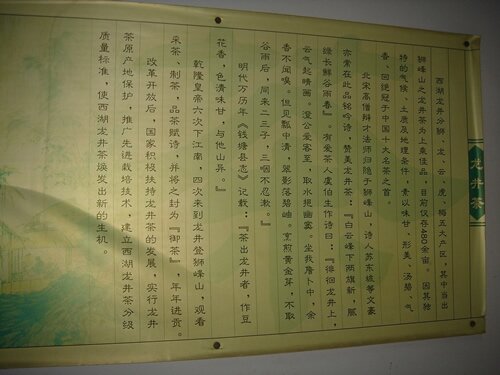 龙井茶
西湖龙井分狮、龙、云、虎、梅五大产区，其中当出
狮峰山之龙井茶为上乘佳品，目前仅存480余亩。因其独
特的气候、土质及地理条件，素以味甘、形美、汤碧、气
香，因绝冠于中国十大名茶之首。
北宋高僧辩才法师归隐于狮峰山，诗人苏东坡等文豪
亦常在此品铭吟诗，赞美龙井茶：『白云峰下两旗新，腻
绿长鲜谷雨春』。有爱茶人虞伯生作诗曰：『徘徊龙井上，
云气起晴画。澄公爱客至，取水挹幽窦。坐我詹卜中，余
香不闻嗅。但见瓢中清，翠影落碧岫。烹煎黄金芽，不取
谷雨后，同来二三子，三咽不忍漱。』
明代万历年《钱塘县志》记载：『茶出龙井者，作豆
花香，色清味甘，与他山异。』
乾隆皇帝六次下江南，四次来到龙井登狮峰山，观看
采茶、制茶，品茶赋诗，并将之封为『御茶』，年年进贡。
改革开放后，国家积极扶持龙井茶的发展，实行龙井
茶原产地保护，推广先进栽培技术，建立西湖龙井茶分级
质量标准，使西湖龙井茶焕发出新的生机。